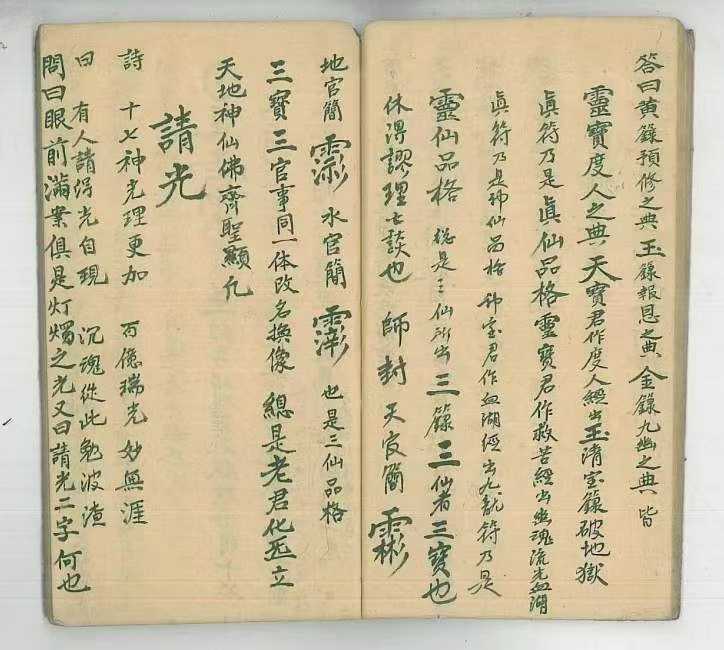 答曰黄籙預修之典玉籙報恩之典金籙九幽之典皆
靈寶度人之典天寶君作度人經出玉隋宝籙破地獄
真符乃是真仙品格靈寶君作救苦經出幽魂流光血湖
真符乃是神仙品格神宝君作血湖經出九龍符乃是
靈仙品格 総是三仙所出三籙三仙者三寶也
休得謬理乜談也 師封天官簡
地官簡 水官簡 也是三仙品格
三寶三官事同一体改名換像 總是老君化
天地神仙佛齊聖顯
請光
詩 十七神光理更加 百億瑞光妙無涯
曰 有人請得光自現 沉魂從此勉波渣
問曰眼前滿案俱是灯燭之光又曰請光二字何也